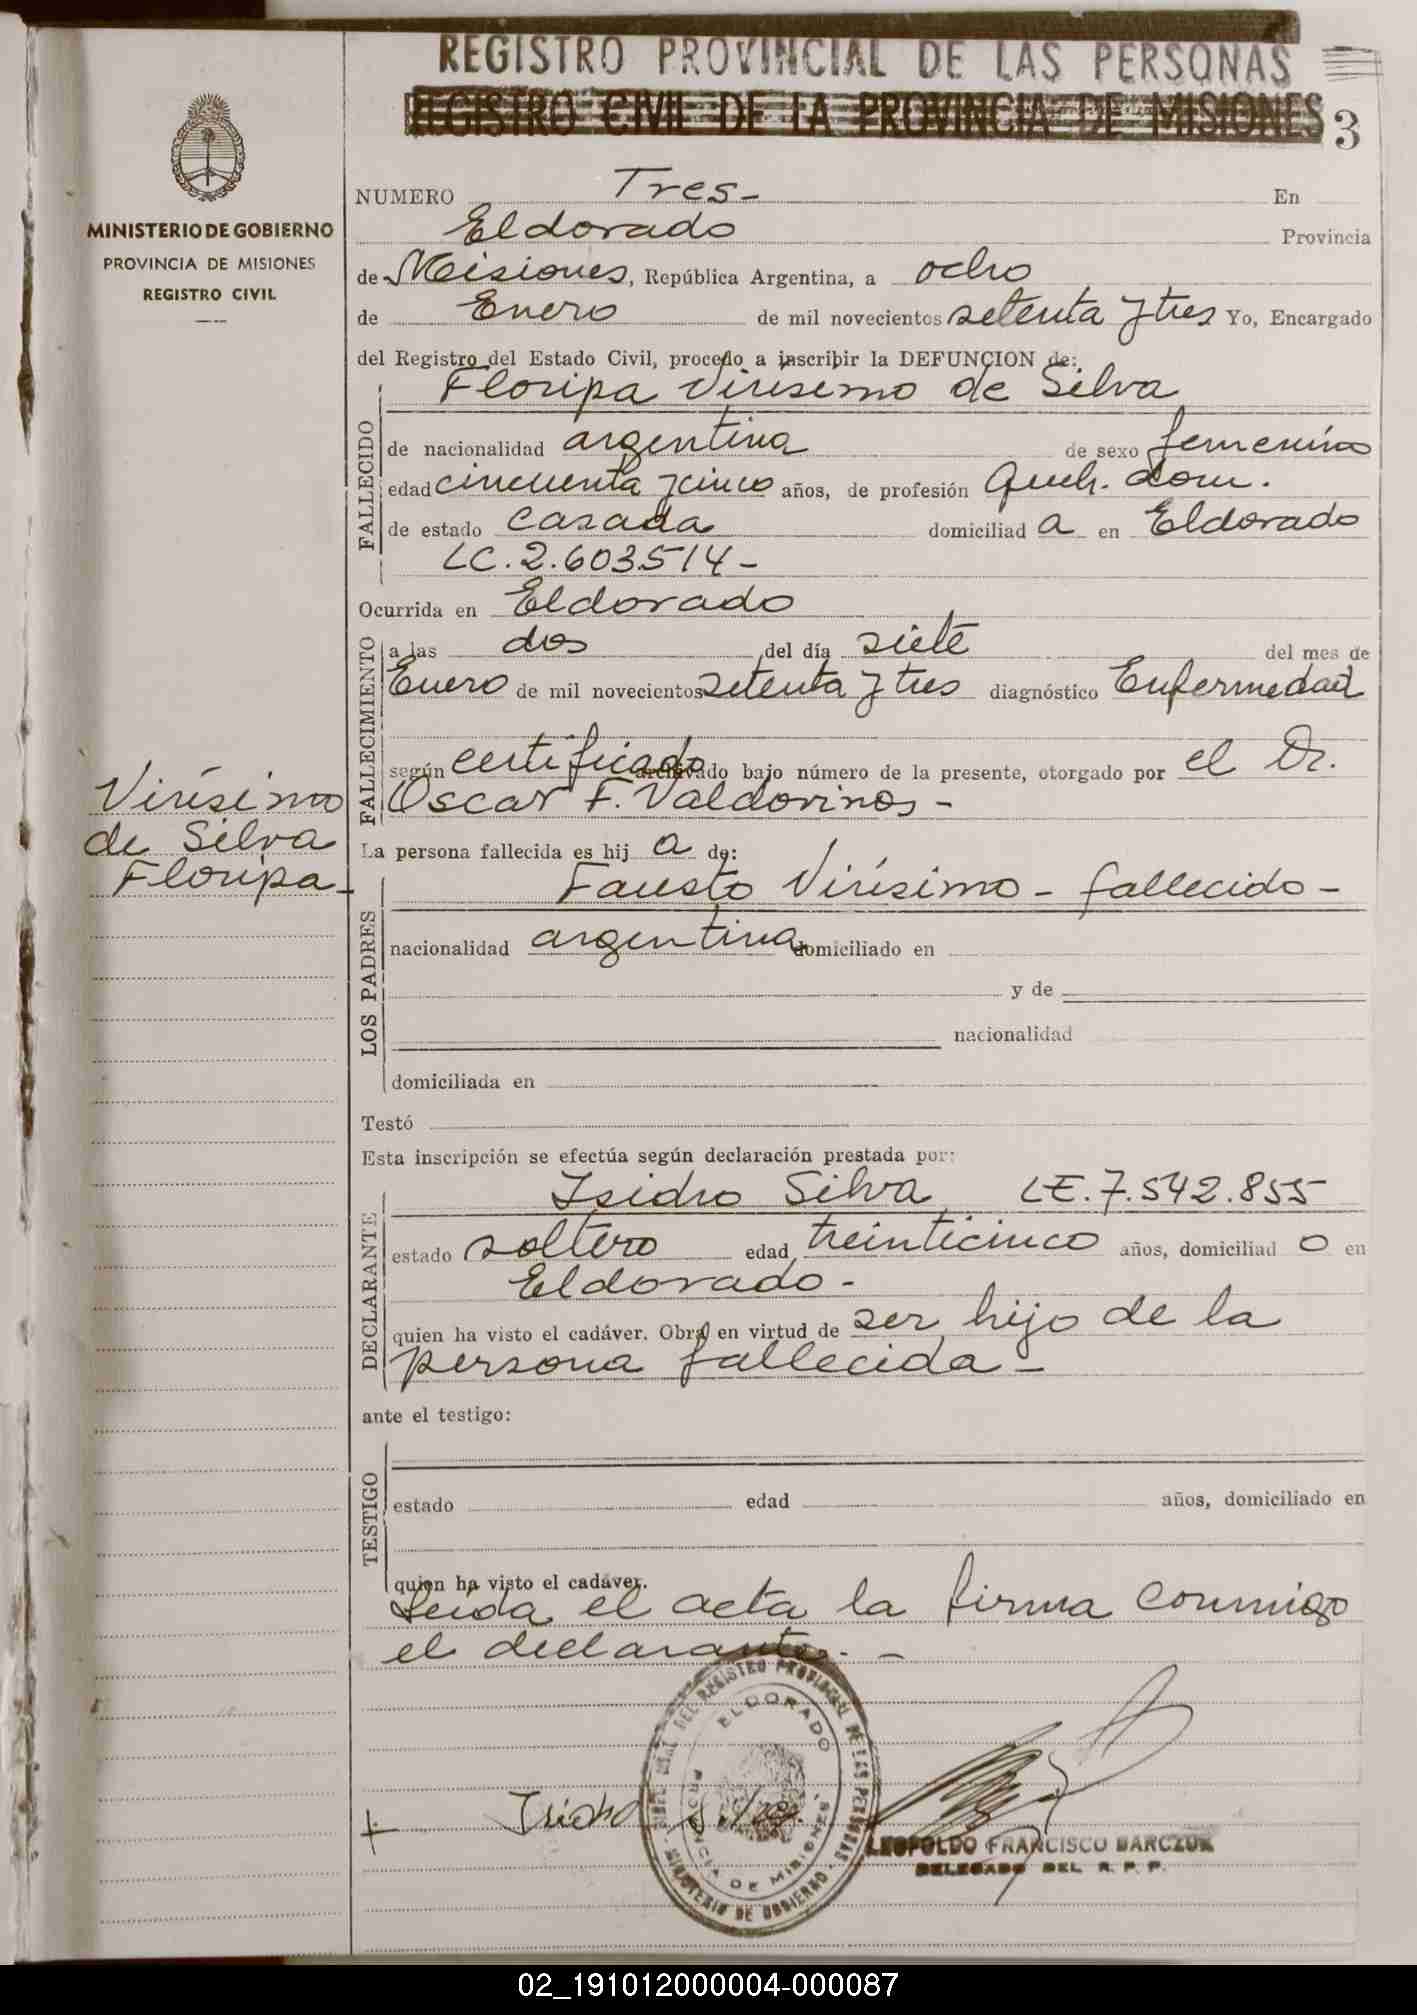 REGISTRO PROVINCIAL DE LAS PERSONAS
REGISTRO CIVIL DE LA PROVINCIA DE MISIONES
3
MINISTERIO DE GOBIERNO
PROVINCIA DE MISIONES
REGISTRO CIVIL
NUMERO Tres- En
Eldorado Provincia
de Misiones, República Argentina, a ocho
de Enero de mil novecientos setenta y tres Yo, Encargado
del Registro del Estado Civil, procedo a inscribir la DEFUNCION de:
FALLECIDO
Floripa Virísimo de Silva
de nacionalidad argentina de sexo femenino
edad cincuenta y cinco años, de profesión Queh. dom.
de estado casada domiciliad a en Eldorado
LC. 2.603514-
Ocurrida en Eldorado
FALLECIMIENTO
a las dos del día siete del mes de
Enero de mil novecientos setenta y tres diagnóstico Enfermedad
según certificado archivado bajo número de la presente, otorgado por el Dr.
Oscar F. Valdovinos -
Virísimo
de Silva
Floripa-
La persona fallecida es hij a de:
LOS PADRES
Fausto Virísimo - fallecido -
nacionalidad argentina domiciliado en
y de
nacionalidad
domiciliada en
Testó
Esta inscripción se efectúa según declaración prestada por:
DECLARANTE
Isidro Silva LE. 7.542.855
estado soltero edad treinticinco años, domiciliad o en
Eldorado -
quien ha visto el cadáver. Obra en virtud de ser hijo de la
persona fallecida -
ante el testigo:
TESTIGO
estado edad años, domiciliado en
quien ha visto el cadáver.
Leida el acta la firma conmigo
el declarante. -
DEL REGISTRO PROVINCIAL DE LAS PERSONAS
ELDORADO
PROVINCIA DE MISIONES
MINISTERIO DE GOBIERNO
Isidro Silva
LEOPOLDO FRANCISCO BARCZUK
DELEGADO DEL R. P. P.
02_191012000004-000087